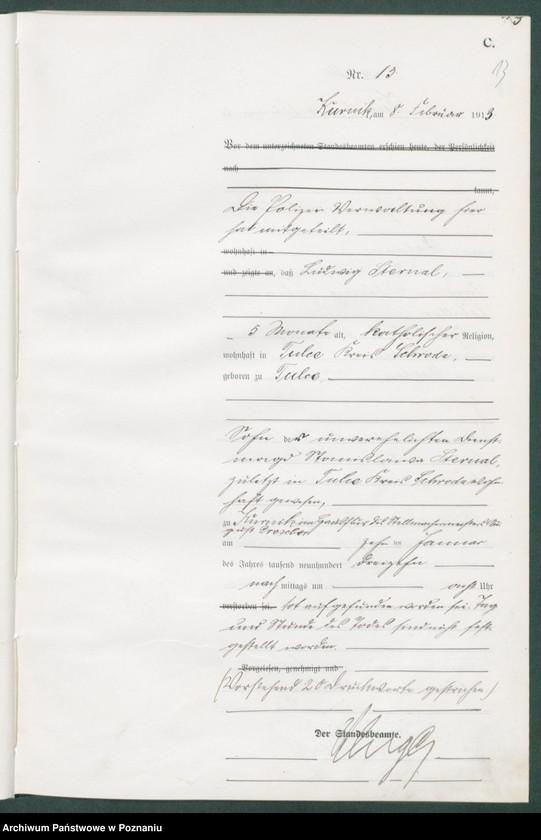 C.
13
Nr. 13
Kurnik, am 8. Februar 1913
Vor dem unterzeichneten Standesbeamten erschien heute, der Persönlichkeit
nach
kannt,
Die Polizei Verwaltung hier
hat mitgeteilt,
wohnhaft in
und zeigte an, daß Ludwig Sternal,
5 Monate alt, katholischer Religion,
wohnhaft in Tulce Kreis Schroda,
geboren zu Tulce
Sohn der unverehelichten Dienst-
magd Stanislawa Sternal,
zuletzt in Tulce Kreis Schroda wohn-
haft gewesen,
zu Kurnik im Hausflur des Stellmachermeisters
am zehn ten Januar
des Jahres tausend neunhundert dreizehn
nach mittags um acht Uhr
verstorben sei. tot aufgefunden worden sei. Tag
und Stunde des Todes sind nicht fest-
gestellt worden.
Vorgelesen, genehmigt und
(Vorstehend 20 Druckworte gestrichen)
Der Standesbeamte.
Archiwum Państwowe w Poznaniu